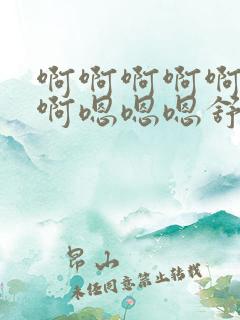 啊啊啊啊啊
啊嗯嗯嗯舒
昂山
未经同意禁止转载